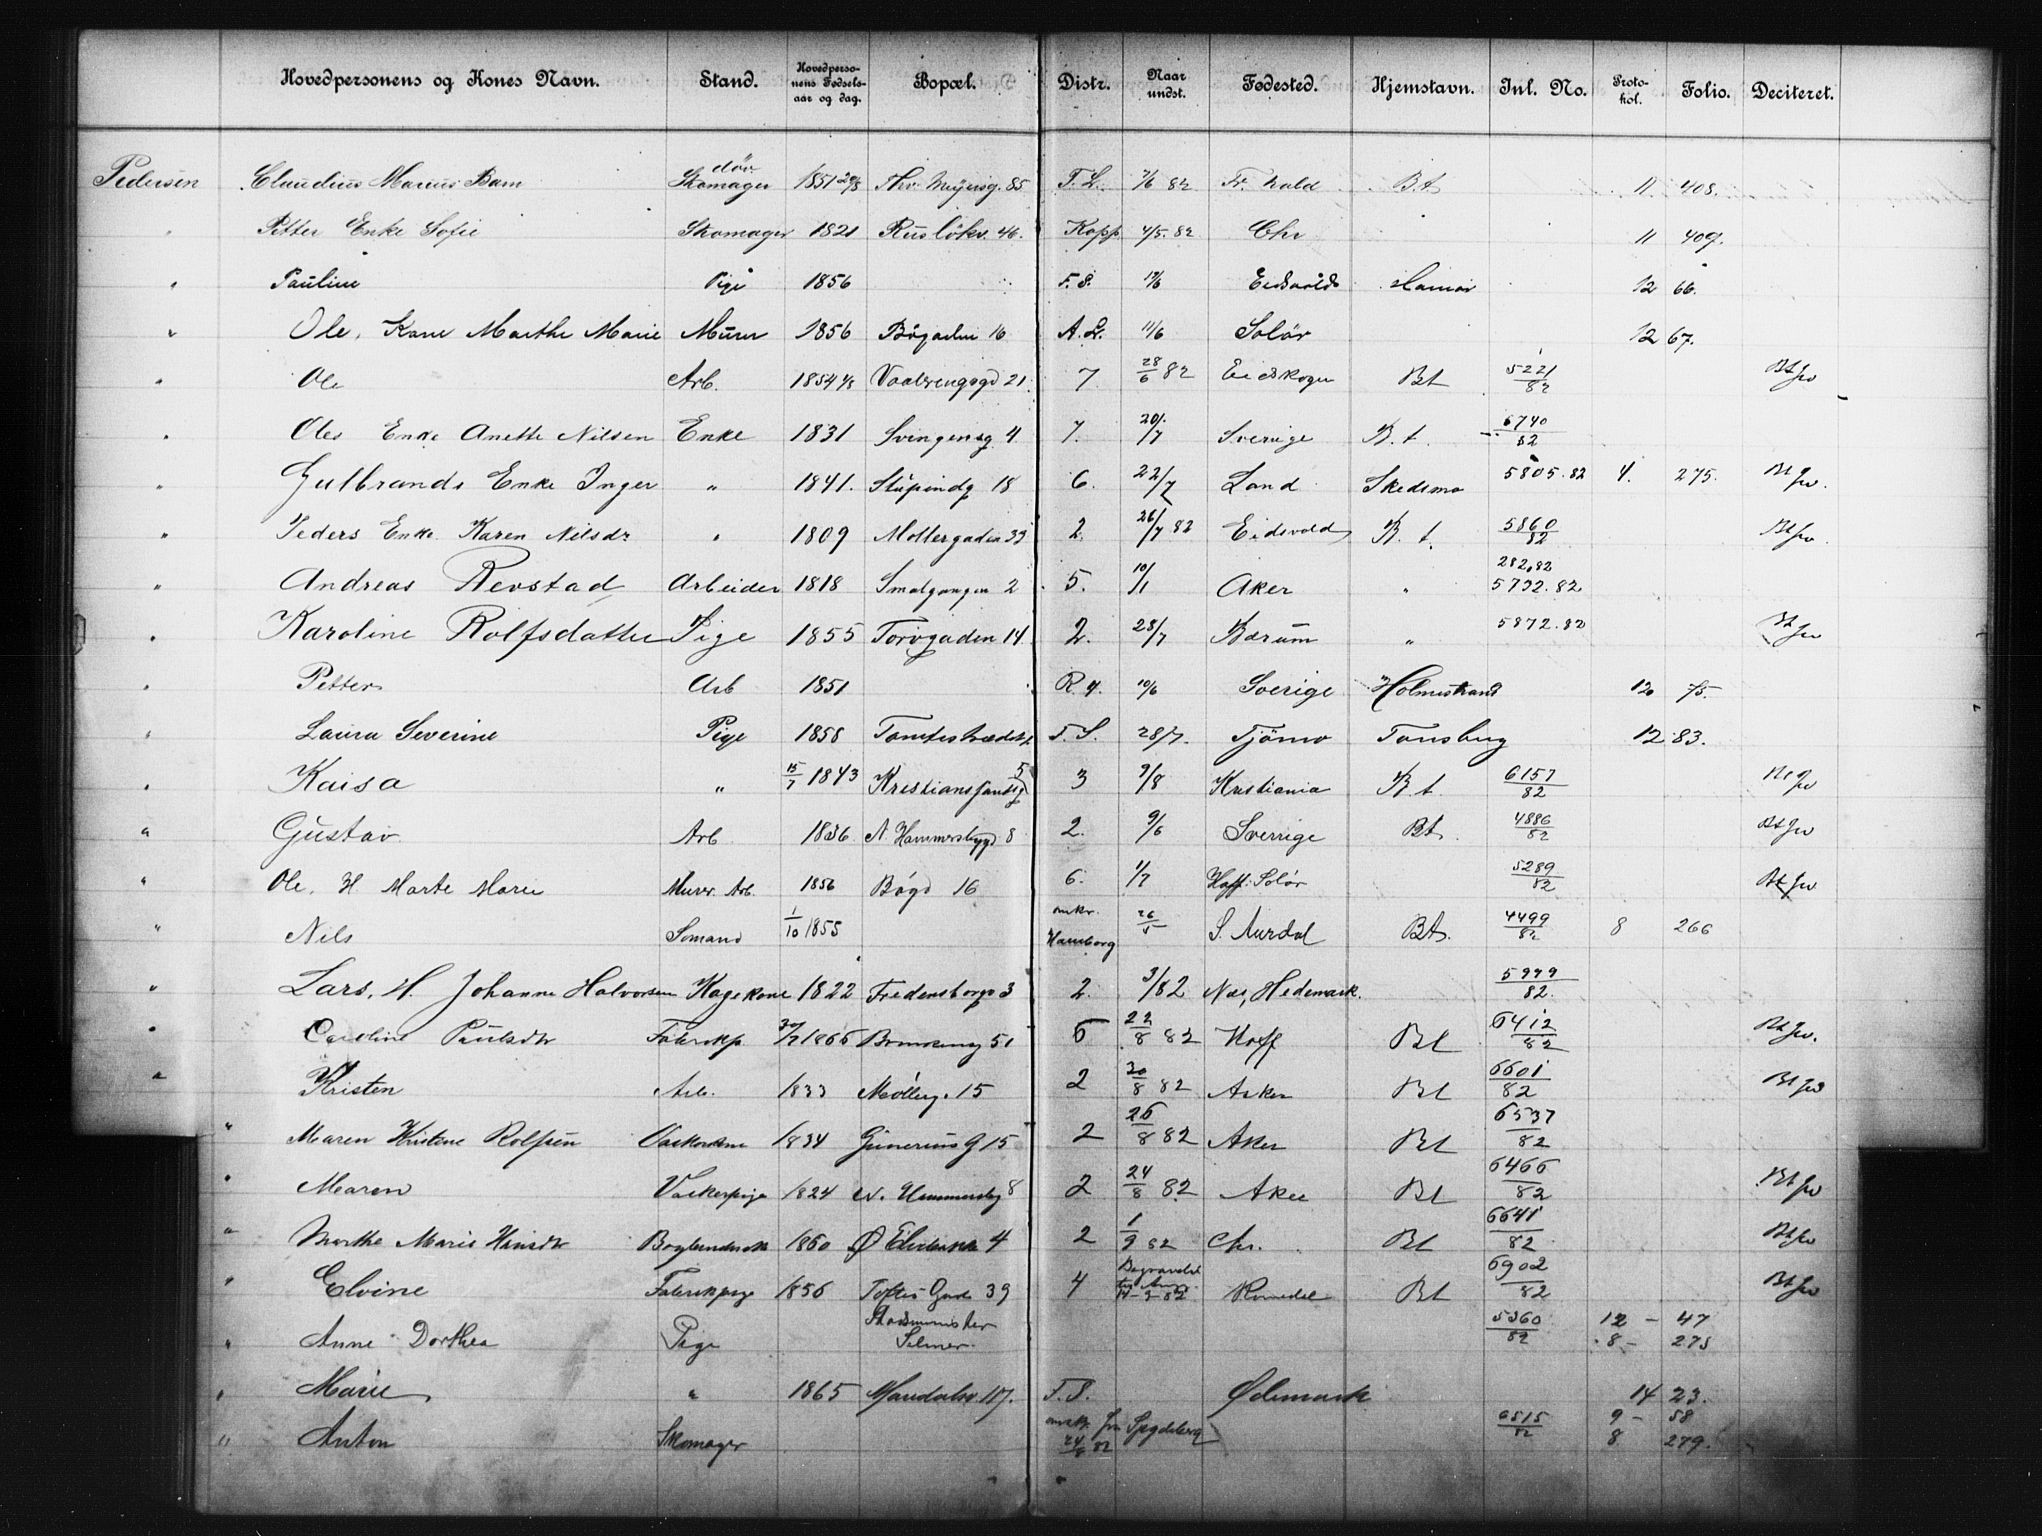 Hovedpersonens og Kones Navn. Stand. Hovedpersonens Fødselsaar og dag. Bopæl. Distr. Naar undst. Fødested. Hjemstavn. Inl. No. Protokol. Folio. Deciteret.
Pedersen Claudius Marius Bam døv Skomager 1851 20/8 Thv. Meyersg. 85 F. L. 7/6 82 Fr. hald Bt 11 408.
" Petter Enke Sofie Skomager 1821 Rusløkv. 46. Kopp 4/5. 82 Chr 11 409.
" Pauline Pige 1856 F. S. Eidsvold Hamar 12 66.
" Ole, Kone Marthe Marie Murer 1856 Bøgaden 16 A. L. 11/6 Solør 12 67.
" Ole Arb. 1854 Vaalerengsgd 21 7 28/6 82 Eidskogen Bt 5221/82 Bt
" Oles Enke Anette Nilsen Enke 1831 Svingensg 4 7. 20/7 Sverrige B. t. 6740/82
" Gulbrands Enke Inger " 1841. Stupindg 18 6. 22/7 Land Skedsmo 5805.82 4. 275. Bt
" Peders Enke Karen Nilsdr " 1809 Møllergaden 39 2. 26/7 82 Eidsvold B. t. 5860/82 Bt
" Andreas Revstad Arbeider 1818 Smalgangen 2 5. 10/1 Aker " 282.82 5792.82
" Karoline Rolfsdatter Pige 1855 Torvgaden 14. 2. 28/7 Bærum " 5872.82 Bt
" Petter Arb 1851 R. 4. 10/6 Sverige Holmestrand 12 75.
" Laura Severine Pige 1858 F. S. 28/7. Tjømø Tønsberg 12 83.
" Kaisa " 15/7 1843 Kristianssandsg 5 3 9/8 Kristiania B. t. 6157/82 Bt
" Gustav Arb 1836 N. Hammersbggd 8 2. 9/6 Sverrige Bt. 4886/82 Bt
" Ole, H. Marte Marie Murer. Arb. 1856 Bøgd 16 6. 1/7 Hoff. Solør 5289/82 Bt
" Nils Sømand 1/10 1855 ankr. Hamborg 26/5 S. Aurdal Bt. 4499/82 8 266
" Lars, H. Johanne Halvorsen Kagekone 1822 Fredensborgv 3 2. 3/82 Næs, Hedemark. 5979/82.
" Caroline Paulsdtr Fabrikp. 30/7 1866 51 6 22/8 82 Hoff Bt 6412/82 Bt
" Kristen Arb. 1833 Møllerg. 15 2 30/8 82 Asker Bt 6601/82 Bt
" Maren Kristine Rolfsen Vaskekone 1834 Gunerius G 15 2 26/8 82 Aker Bt 6537/82
" Maren Vaskerpige 1824 N. Hammersbg 8 2 24/8 82 Aker Bt 6466/82 Bt
" Marthe Marie Hansdtr 1860 Ø 4 2 1/9 82 Chr. Bt 6641/82 Bt
" Elvine Fabrikpige 1856 Toftes Gade 39 4 Romedal Bt 6902/82 Bt
" Anne Dorthea Pige Statsminister Selmer. 5360/82 12 - 47 8 - 275
" Marie " 1865 Mandalsv. 17. F. S. Ødemark 14 23.
" Anton Skomager ankr. fra Spydeberg 24/8 82 6515/82 9 - 58 8 279.